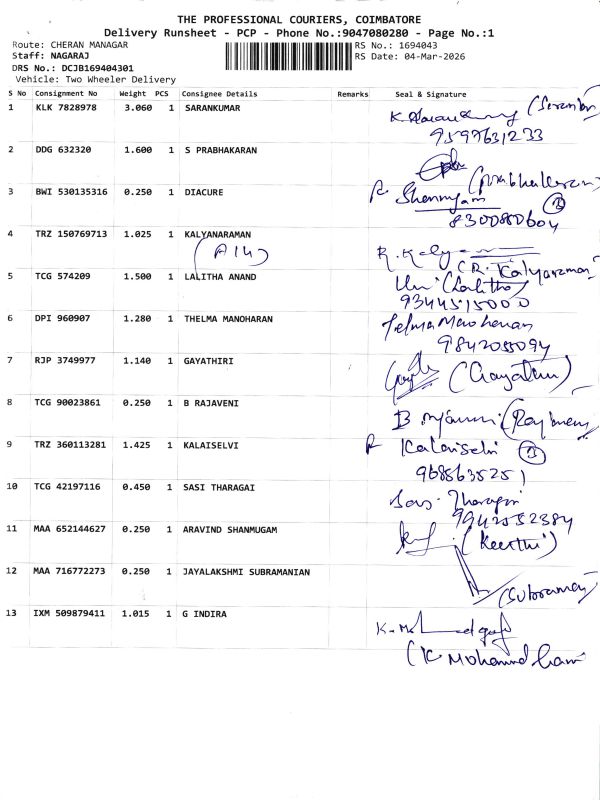 THE PROFESSIONAL COURIERS, COIMBATORE
Delivery Runsheet - PCP - Phone No.:9047080280 - Page No.:1
Route: CHERAN MANAGAR RS No.: 1694043
Staff: NAGARAJ RS Date: 04-Mar-2026
DRS No.: DCJB169404301
Vehicle: Two Wheeler Delivery
S No Consignment No Weight PCS Consignee Details Remarks Seal & Signature
1 KLK 7828978 3.060 1 SARANKUMAR
9597631233
2 DDG 632320 1.600 1 S PRABHAKARAN
3 BWI 530135316 0.250 1 DIACURE
8300860604
4 TRZ 150769713 1.025 1 KALYANARAMAN R. Kalyan
(A14) (R. Kalyanaraman
5 TCG 574209 1.500 1 LALITHA ANAND (Lalitha)
9344515000
6 DPI 960907 1.280 1 THELMA MANOHARAN Telma Manoharan
9842055094
7 RJP 3749977 1.140 1 GAYATHIRI (Gayathiri)
8 TCG 90023861 0.250 1 B RAJAVENI B
9 TRZ 360113281 1.425 1 KALAISELVI Kalaiselvi
9685635251
10 TCG 42197116 0.450 1 SASI THARAGAI Tharagai
9942552384
11 MAA 652144627 0.250 1 ARAVIND SHANMUGAM (Keerthi)
12 MAA 716772273 0.250 1 JAYALAKSHMI SUBRAMANIAN
(Subraman
13 IXM 509879411 1.015 1 G INDIRA
(K Mohamed Gani